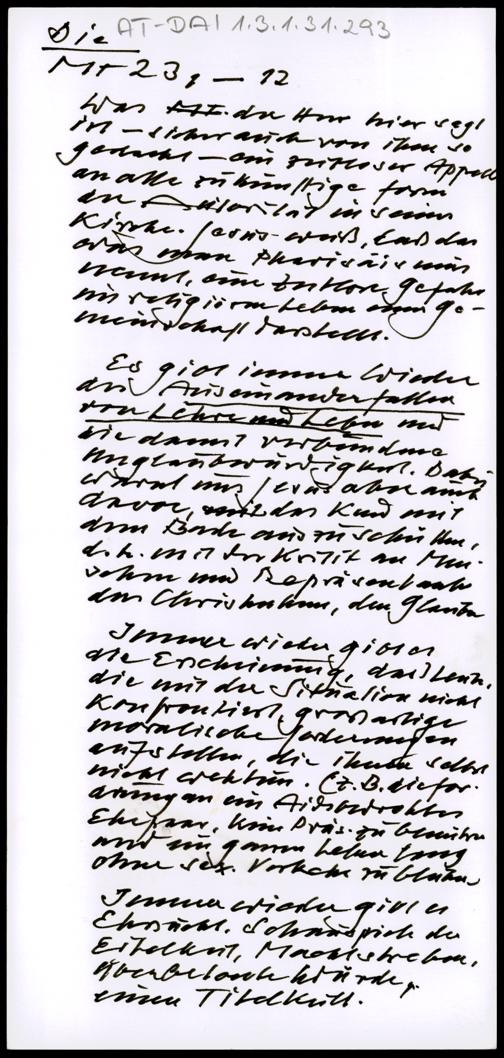 Die AT-DAI 1.3.1.31.293
Mt 23, 1 – 12
Was der Herr hier sagt
ist – sicher auch von ihm so
gedacht – ein zeitloser Appell
an alle zukünftige Form
der Autorität in seiner
Kirche. Jesus weiß, daß das
was man Pharisäismus
nennt, eine zeitlose Gefahr
im religiösen Leben Ge-
meinschaft darstellt.
Es gibt immer wieder
das Auseinanderfallen
von Lehre und Leben und
die damit verbundene
Unglaubwürdigkeit. Dabei
warnt uns Jesus aber auch
davor, das Kind mit
dem Bade auszuschütten,
d.h. mit der Kritik an Men-
schen und Repräsentanten
des Christentums, den Glauben
Immer wieder gibt es
die Erscheinung, das Leute,
die mit der Situation nicht
konfrontiert, großartige
moralische Forderungen
aufstellen, die ihnen selbst
nicht wehtun. (z.B. die For-
derung an ein Aidsbedrohtes
Ehepaar, kein Präs. zu benützen
und ein ganzes Leben lang
ohne sex. Verkehr zu bleiben
Immer wieder gibt es
Ehrsucht, Schauspiele der
Eitelkeit, Machtstreben,
überbetonte Würde,
einen Titelkult.